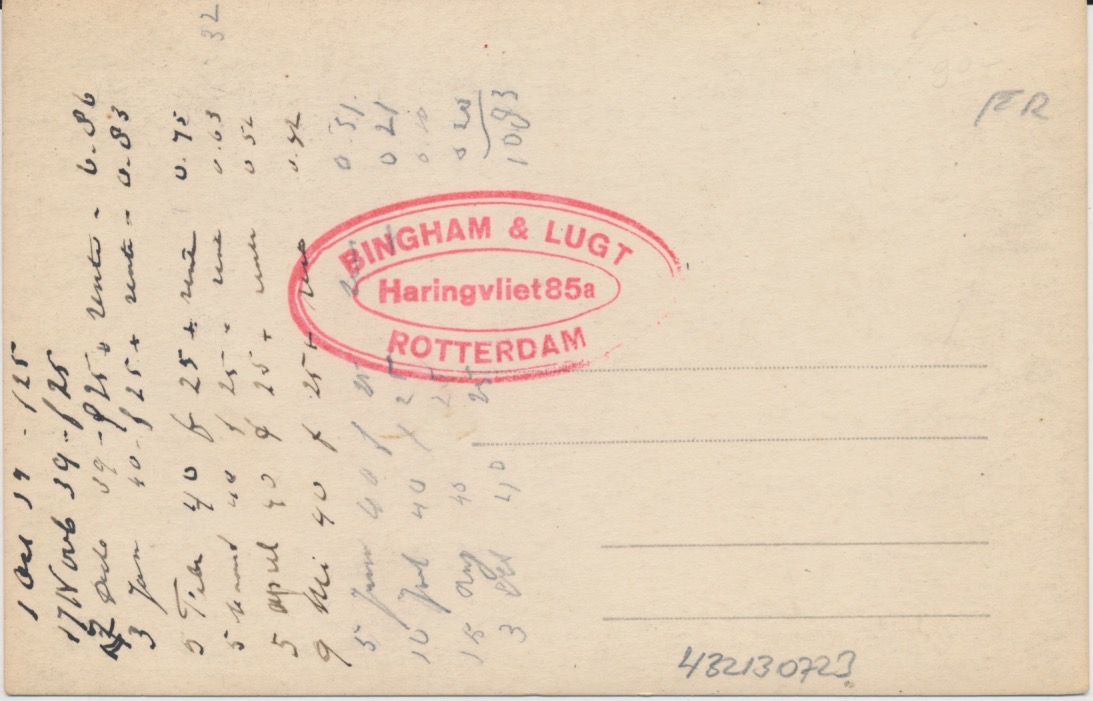 32
1 39 - f 25
17 Novb 39 - f 25
39 - f 25 + rente - 0.86
3 Jan 40 - f 25 + rente - 0.83
5 Febr 40 f 25 + rente 0.75
5 40 f 25 - rente 0.63
5 april 40 f 25 + rente 0.52
9 Mei 40 f 25 + rente 0.42
5 Juni 40 f 25 0.31
10 Juli 40 f 25 0.21
15 Aug 40 25 0.10
3 40 25 0 20
10 93
BINGHAM & LUGT
Haringvliet 85a
ROTTERDAM
FER
432130723